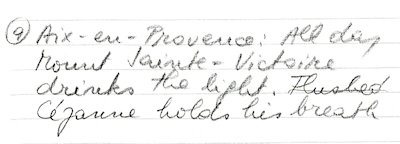 (9) Aix-en-Provence: All day
Mount Sainte-Victoire
drinks the light. Flushed
Cézanne holds his breath